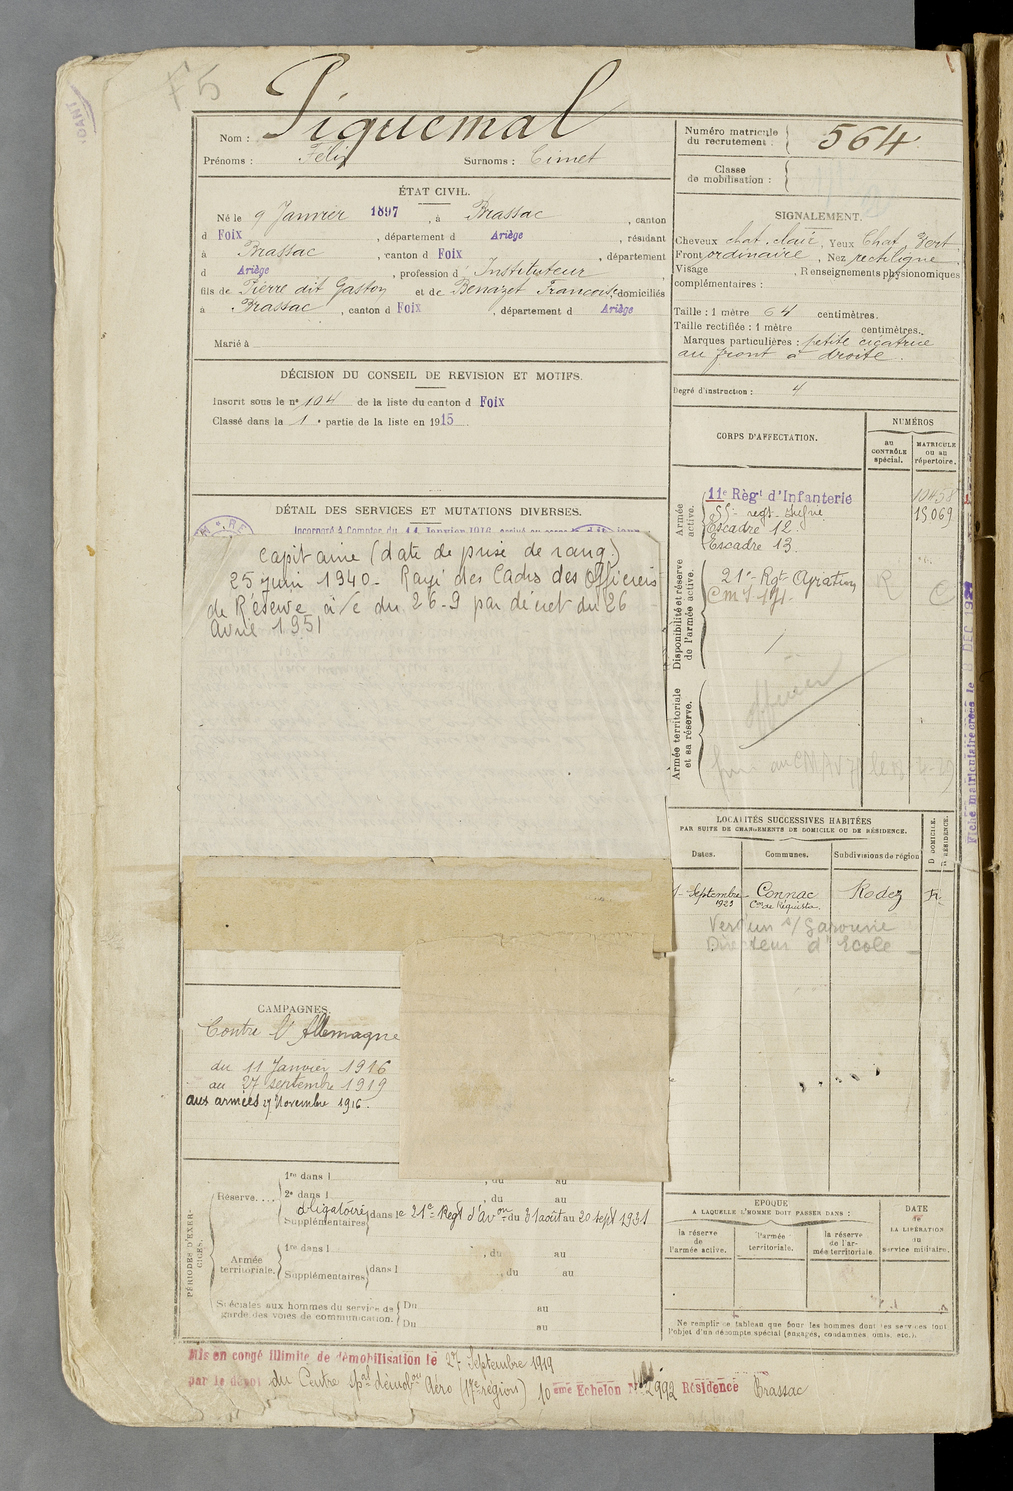 F5
Nom : Piquemal
Prénoms : Félix Surnoms : Cimet
Numéro matricule du recrutement : 564
Classe de mobilisation :
ÉTAT CIVIL.
Né le 9 Janvier 1897, à Brassac, canton
d Foix, département d Ariège, résidant
à Brassac, canton d Foix, département
d Ariège, profession d Instituteur,
fils de Pierre dit Gaston et de Benazet Francoise, domiciliés
à Brassac, canton d Foix, département d Ariège
Marié à
DÉCISION DU CONSEIL DE REVISION ET MOTIFS.
Inscrit sous le n° 104 de la liste du canton d Foix
Classé dans la 1e partie de la liste en 1915.
DÉTAIL DES SERVICES ET MUTATIONS DIVERSES.
Incorporé à Compter du 11 Janvier 1916
Capitaine (date de prise de rang.)
25 juin 1940 - Rayé des Cadres des Officiers
de Réserve à/c du 26-9 par décret du 26
avril 1951
CAMPAGNES.
Contre l'Allemagne
du 11 Janvier 1916
au 27 septembre 1919
aux armées 27 Novembre 1916.
SIGNALEMENT.
Cheveux chat. clair, Yeux Chat. Vert
Front ordinaire, Nez rectiligne
Visage , Renseignements physionomiques
complémentaires :
Taille : 1 mètre 64 centimètres.
Taille rectifiée : 1 mètre centimètres.
Marques particulières : petite cicatrice
au front à droite.
Degré d'instruction : 4
CORPS D'AFFECTATION.
NUMÉROS
au CONTRÔLE spécial.
MATRICULE ou au répertoire.
Armée active.
11e Régt d'Infanterie 10458
15069
Escadre 12.
Escadre 13.
Disponibilité et réserve de l'armée active.
21e Rgt Aviation
Armée territoriale et sa réserve.
officier
Fiche matriculaire créée le
LOCALITÉS SUCCESSIVES HABITÉES
PAR SUITE DE CHANGEMENTS DE DOMICILE OU DE RÉSIDENCE.
Dates. Communes. Subdivisions de région D DOMICILE. R RÉSIDENCE.
Septembre 1923 Connac Con de Réquista. Rodez R.
Verdun s/ Garonne
Directeur d'Ecole
PÉRIODES D'EXERCICES.
Réserve.... 1re dans l , du au
2e dans l , du au
obligatoire Supplémentaires dans le 21e Regt d'avon du 31 août au 20 sept 1931
Armée territoriale. 1re dans l , du au
Supplémentaires dans l , du au
Spéciales aux hommes du service de garde des voies de communication. Du au
Du au
EPOQUE
A LAQUELLE L'HOMME DOIT PASSER DANS :
la réserve de l'armée active. l'armée territoriale. la réserve de l'armée territoriale
DATE de LA LIBÉRATION du service militaire.
Ne remplir ce tableau que pour les hommes dont les services font
l'objet d'un décompte spécial (engagés, condamnés, omis, etc.).
Mis en congé illimité de démobilisation le 27 Septembre 1919
par le dépôt du Centre spal démobon Aéro (17e région) 10eme Echelon N° 2992 Résidence Brassac